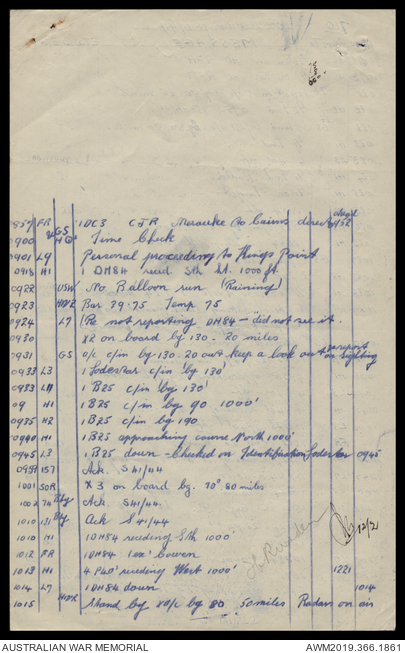 0957 FR 1 DC3 CJR Merauke to Cairns direct
0900 GS Time Check
0901 L9 Personal proceeding to Kings Point
0918 H1 1 DH84 reced Sth ht. 1000 ft.
0922 No Balloon run (Raining)
0923 Bar 29.75 Temp 75
0924 L7 (Re not reporting DH84 - did not see it.
0930 X2 on board bg 130 - 20 miles
0931 GS a/c c/in bg 130. 20 out keep a look out report on sighting
0933 L3 1 Lodestar c/in bg 130'
0933 L11 1 B25 c/in bg 130'
09 H1 1 B25 c/in bg 90 1000'
0935 H2 1 B25 c/in bg 190
0940 H1 1 B25 approaching course North 1000'
0945 L3 1 B25 down - checked on Identification Lodestar 0945
0959 157 Ack. S41/44
1001 SOR X3 on board bg. 70° 80 miles
1002 74 Ack S41/44.
1010 131 Ack S41/44
1010 H1 1 DH84 receding Sth 1000'
12/2
1012 FR 1 DH84 Cowen
1013 H1 4 P40' receding West 1000' 1221
1014 L7 1 DH84 down 1014
1015 Stand by XO/c bg 80 50 miles Radars on air
AUSTRALIAN WAR MEMORIAL
AWM2019.366.1861